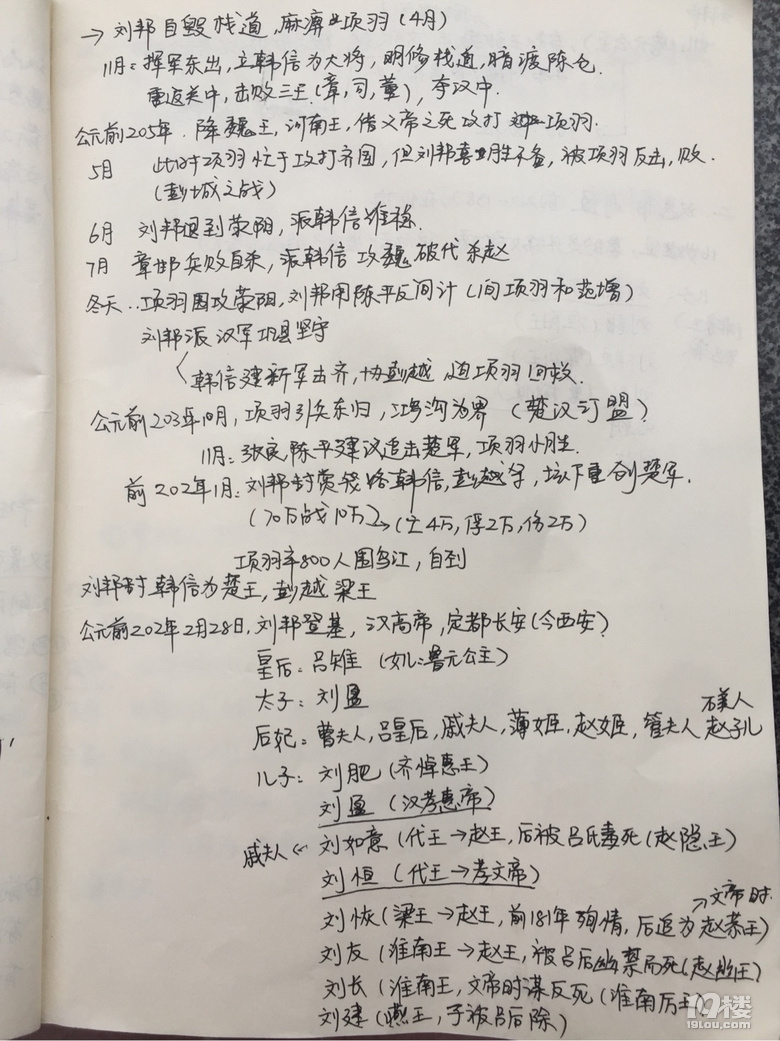 → 刘邦自毁栈道,麻痹项羽(4月)
11月:挥军东出,立韩信为大将,明修栈道,暗渡陈仓
重返关中,击败三王(章,司,董),夺汉中.
公元前205年.降魏王,河南王,借义帝之死攻打项羽.
5月 此时项羽忙于攻打齐国,但刘邦喜胜不备,被项羽反击,败.
(彭城之战)
6月 刘邦退到荥阳,派韩信维稳.
7月 章邯兵败自杀,派韩信攻魏破代杀赵
冬天..项羽围攻荥阳,刘邦用陈平反间计(间项羽和范增)
刘邦派汉军巩县坚守
韩信建新军击齐,协彭越 迫项羽回救.
公元前203年10月,项羽引兵东归,鸿沟为界(楚汉订盟)
11月:张良,陈平建议追击楚军,项羽小胜.
前202年1月:刘邦封赏钱给韩信,彭越等,垓下重创楚军.
(70万战10万)→(亡4万,俘2万,伤2万)
项羽率800人围乌江,自刎
刘邦封韩信为楚王,彭越梁王
公元前202年2月28日,刘邦登基,汉高帝,定都长安(今西安)
皇后:吕雉(女儿:鲁元公主)
太子:刘盈
石美人
后妃:曹夫人,吕皇后,戚夫人,薄姬,赵姬,管夫人 赵子儿
儿子:刘肥(齐悼惠王)
刘盈(汉孝惠帝)
戚夫人 刘如意(代王→赵王,后被吕氏毒死(赵隐王)
刘恒(代王→孝文帝)
→文帝时
刘恢(梁王→赵王,前181年殉情,后追为赵恭王)
刘友(淮南王→赵王,被吕后幽禁而死(赵幽王)
刘长(淮南王,文帝时谋反死(淮南厉王)
刘建(燕王,子被吕后除)
19楼
19lou.com